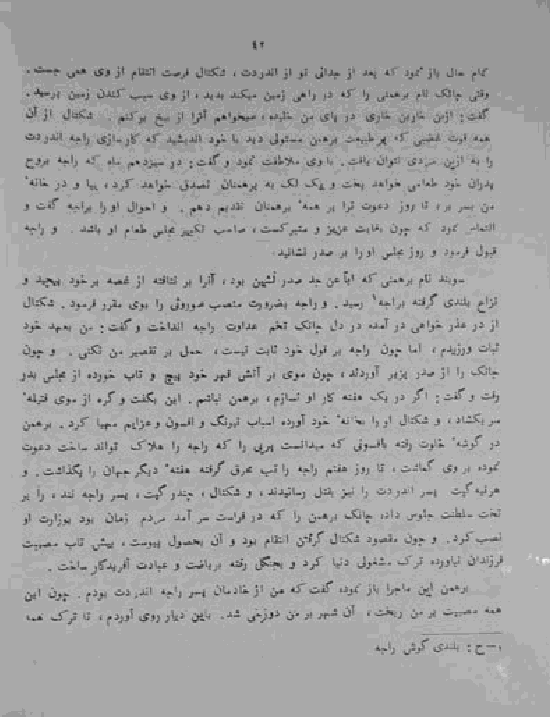 ۴۲
تمام حال باز نمود که بعد از جدائی تو از اندردت ، شکتال فرصت انتقام از وی همی جست .
وقتی چانک نام برهمنی را که در راهی زمین میکند بدید ، از وی سبب کندن زمین پرسید .
گفت : ازین خاربن خاری در پای من خلیده ، میخواهم آنرا از بیخ برکنم . شکتال از آن
همه قوت غضبی که بر طبیعت برهمن مستولی دید با خود اندیشید که کارسازی راجه اندردت
را به ازین مردی نتوان یافت . با وی ملاطفت نمود و گفت : در سیزدهم ماه که راجه بروح
پدران خود طعامی خواهد پخت و یک لک به برهمنان تصدق خواهد کرد ، بیا و در خانهٔ
من بسر بر ، تا روز دعوت ترا بر همهٔ برهمنان تقدیم دهم . و احوال او را براجه گفت و
التماس نمود که چون بغایت عزیز و متبرکست ، صاحب تکبیر مجلس طعام او باشد . و راجه
قبول فرمود و روز مجلس او را بر صدر نشانید .
سوبند نام برهمنی که اباً عن جد صدر نشین بود ، آنرا بر نتافته از غصه بر خود پیچید و
نزاع بلندی گرفته براجه۱ رسید . و راجه بضرورت منصب موروثی را بوی مقرر فرمود . شکتال
از در عذر خواهی در آمده در دل چانک تخم عداوت راجه انداخت و گفت : من بعهد خود
ثبات ورزیدم ، اما چون راجه بر قول خود ثابت نیست ، حمل بر تقصیر من نکنی . و چون
چانک را از صدر بزیر آوردند ، چون موی بر آتش قهر خود پیچ و تاب خورده از مجلس بدو
رفت و گفت : اگر در یک هفته کار او نسازم ، برهمن نباشم . این بگفت و گره از موی فتیلهٔ
سر بکشاد ، و شکتال او را بخانهٔ خود آورده اسباب نیرنگ و افسون و عزایم مهیا کرد . برهمن
در گوشهٔ خلوت رفته بافسونی که میدانست پریی را که راجه را هلاک تواند ساخت دعوت
نموده بر وی گماشت ، تا روز هفتم راجه را تب محرق گرفته هفتهٔ دیگر جهان را بگذاشت . و
هرنیه گپت پسر اندردت را نیز بقتل رسانیدند ، و شکتال ، چندر گپت ، پسر راجه نند ، را بر
تخت سلطنت جلوس داده چانک برهمن را که در فراست سر آمد مردم زمان بود بوزارت او
نصب کرد . و چون مقصود شکتال گرفتن انتقام بود و آن بحصول پیوست ، بیش تاب مصیبت
فرزندان نیاورده ترک مشغولی دنیا کرد و بجنگلی رفته بریاضت و عبادت آفریدگار ساخت .
برهمن این ماجرا باز نموده گفت که من از خادمان پسر راجه اندردت بودم . چون این
همه مصیبت بر من ریخت ، آن شهر بر من دوزخی شد . باین دیار روی آوردم ، تا ترک همه
۱ – ح : بلندی گوش راجه